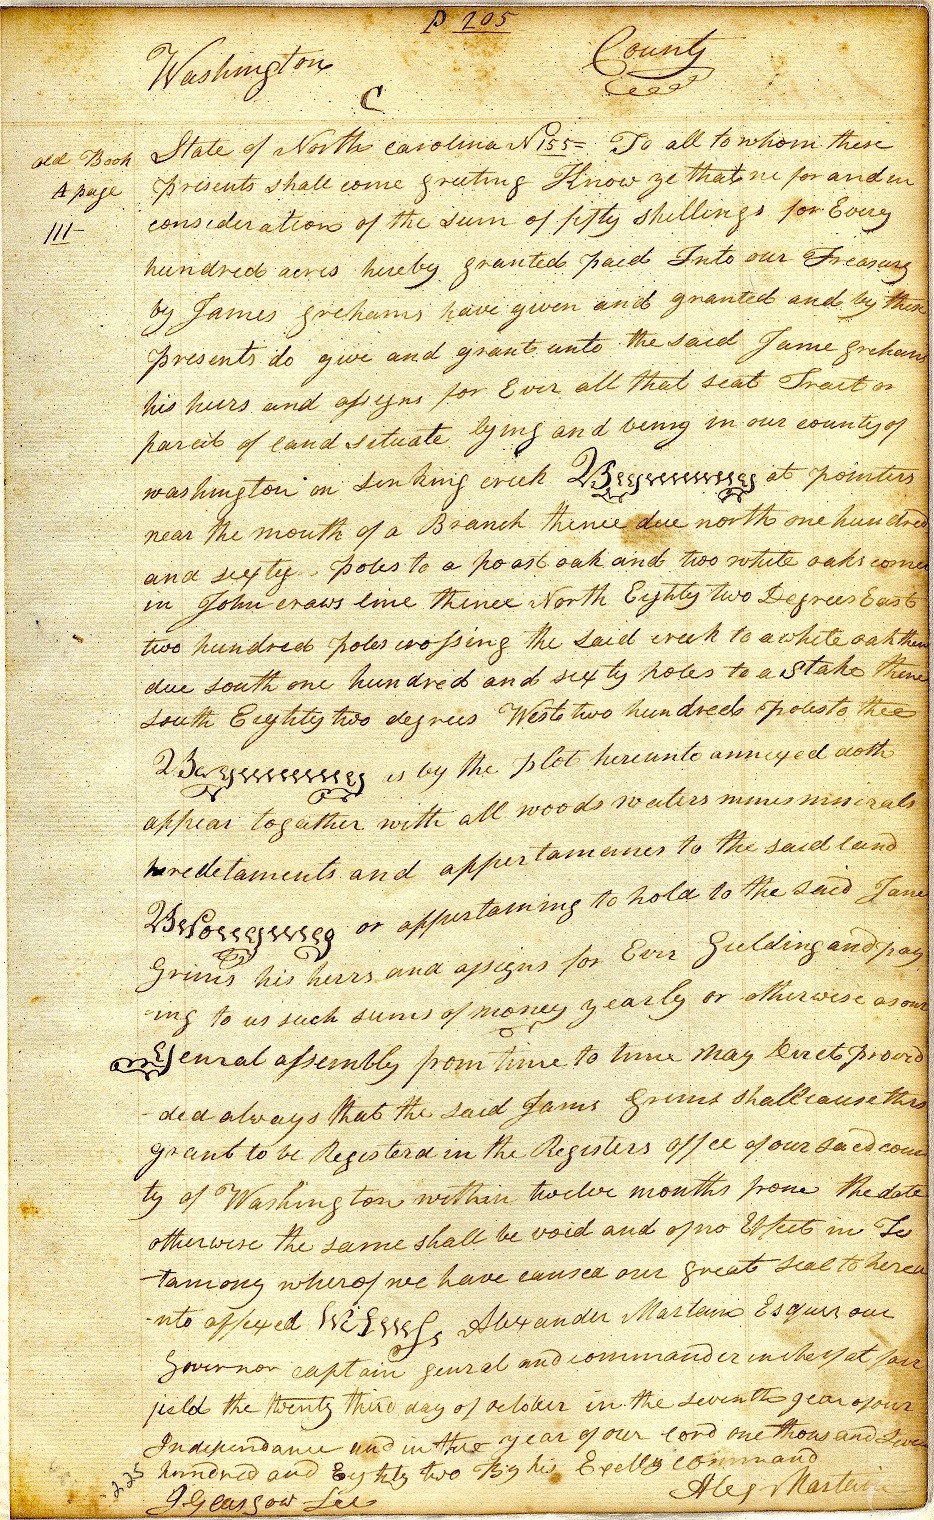 P 205
Washington County
C
old Book
A page
111
State of North carolina No 155= To all to whom these
presents shall come greeting Know ye that we for and in
consideration of the sum of fifty shellings for Every
hundred acres hereby granted paid Into our Treasury
by James grehams have given and granted and by these
presents do give and grant unto the said Jame grehams
his heirs and assigns for Ever all that seat Tract or
parcil of land situate lying and being in our county of
washington on Sinking creek Beginning at pointers
near the mouth of a Branch thence due north one hundred
and sixty poles to a poast oak and two white oaks corner
in John craws line thence North Eighty two Degrees East
two hundred poles crossing the said creek to a white oak then
due south one hundred and sixty poles to a Stake thence
South Eighty two degrees West two hundred poles to thee
Beginning as by the plot hereunto annexed doth
appear together with all woods waters mines minerals
heredetaments and appertainences to the said land
Belonging or appertaining to hold to the said Jame
Grims his heirs and assigns for Ever Yielding and pay
ing to us such sums of money yearly or otherwise as our
General assembly from time to time May Direct provid
ded always that the said Jams Grims shall cause this
grant to be Registerd in the Registers offce of our said coun
ty of Washington within twelve months from the date
otherwise the same shall be void and of no Effect in Te
tamony wherof we have caused our great seal to hereu
nto affixed Witness Alexander Martain Esquir our
Governor captain genral and commander in cheif at fair
field the twenty third day of october in the seventh year of our
Independance and in thee year of our lord one thousand Seven
hundred and Eighty two By his Exelly command
J Glasgow Sec Alex Martain
225